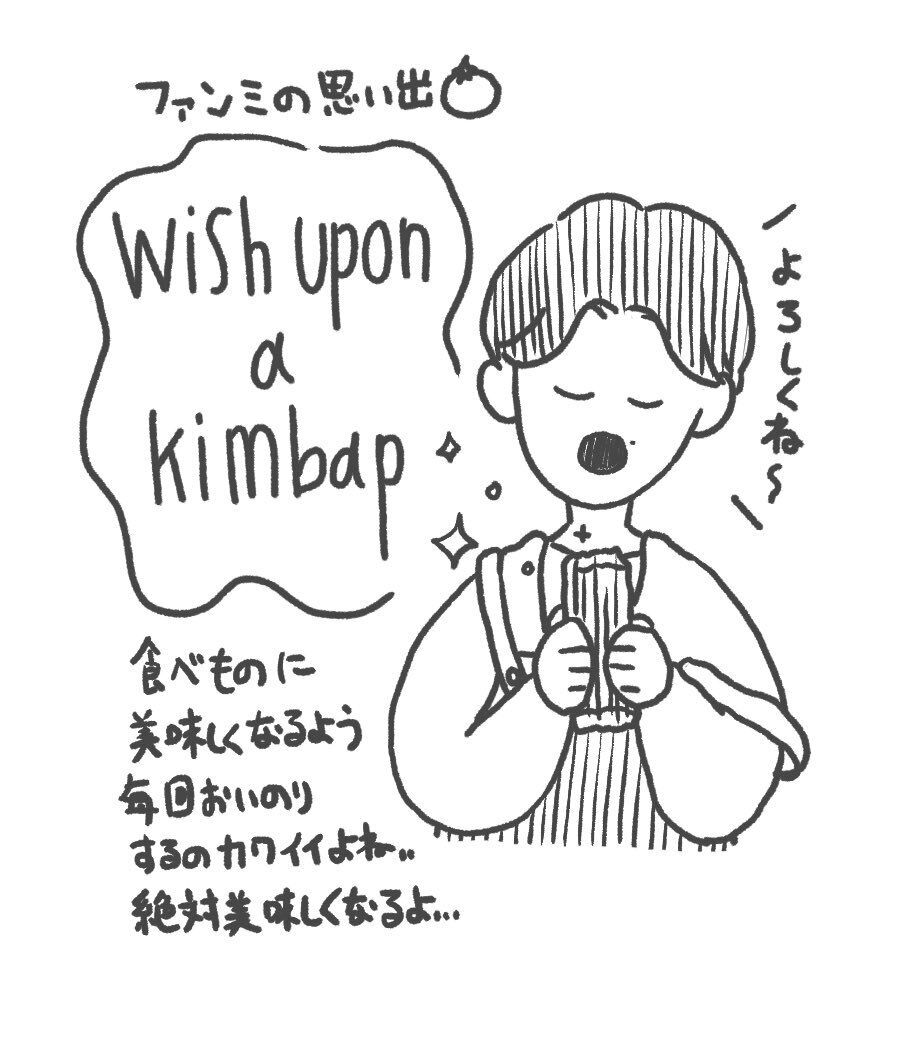 ファンミの思い出
Wish upon
a
kimbap
よろしくね〜
食べものに
美味しくなるよう
毎回おいのり
するのカワイイよね..
絶対美味しくなるよ...